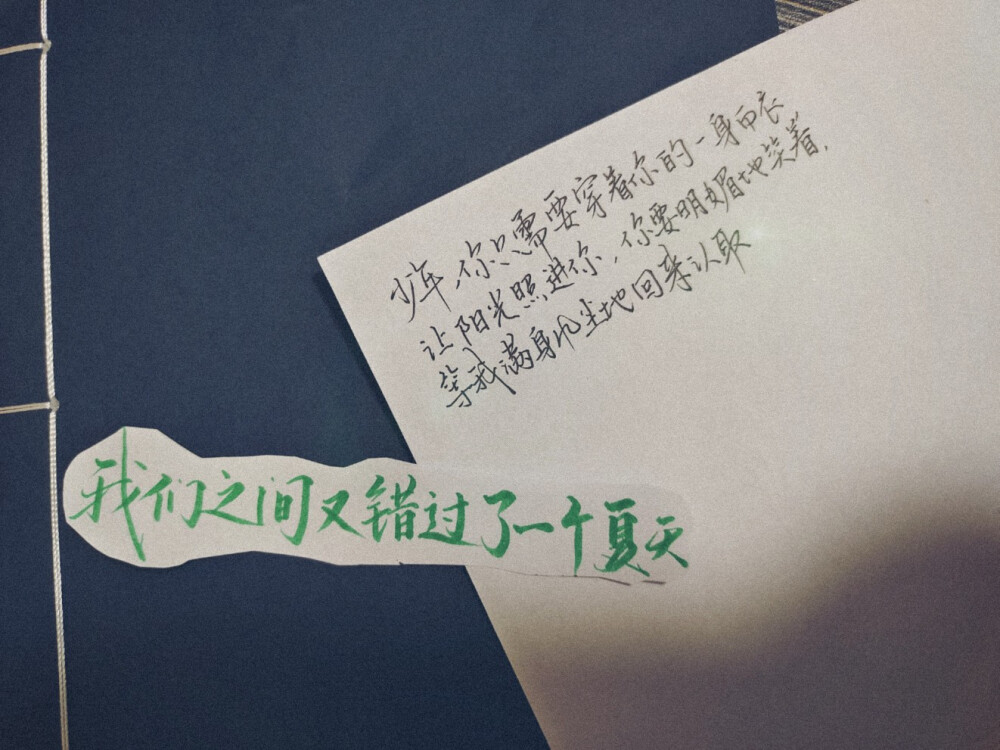 少年,你只需要穿着你的一身白衣
让阳光照进你,你要明媚地笑着,
等我满身风尘地回来认取
我们之间又错过了一个夏天